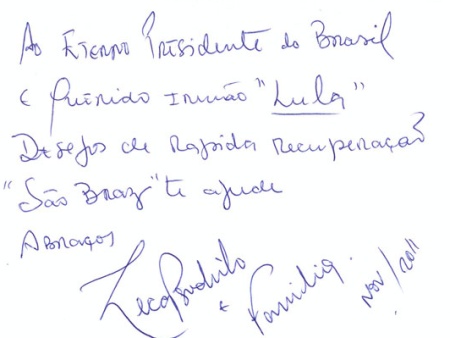 Ao Eterno Presidente do Brasil
e Querido Irmão "Lula"
Desejos de Rapida Recuperação
"São Braz" te ajude
Abraços
Zeca Pivdrito e Familia. Nov/2011